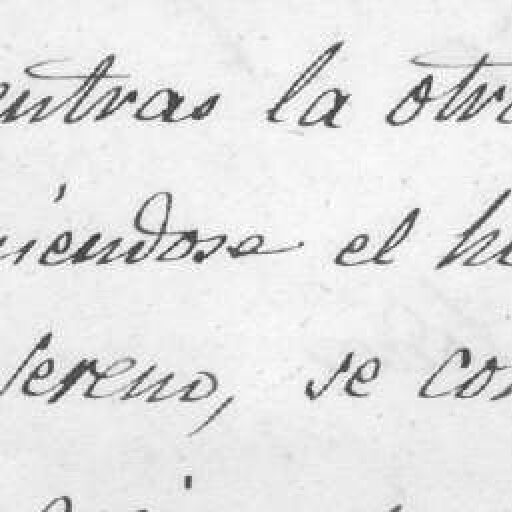 entras la otr
niendose el h
Sereno, se con